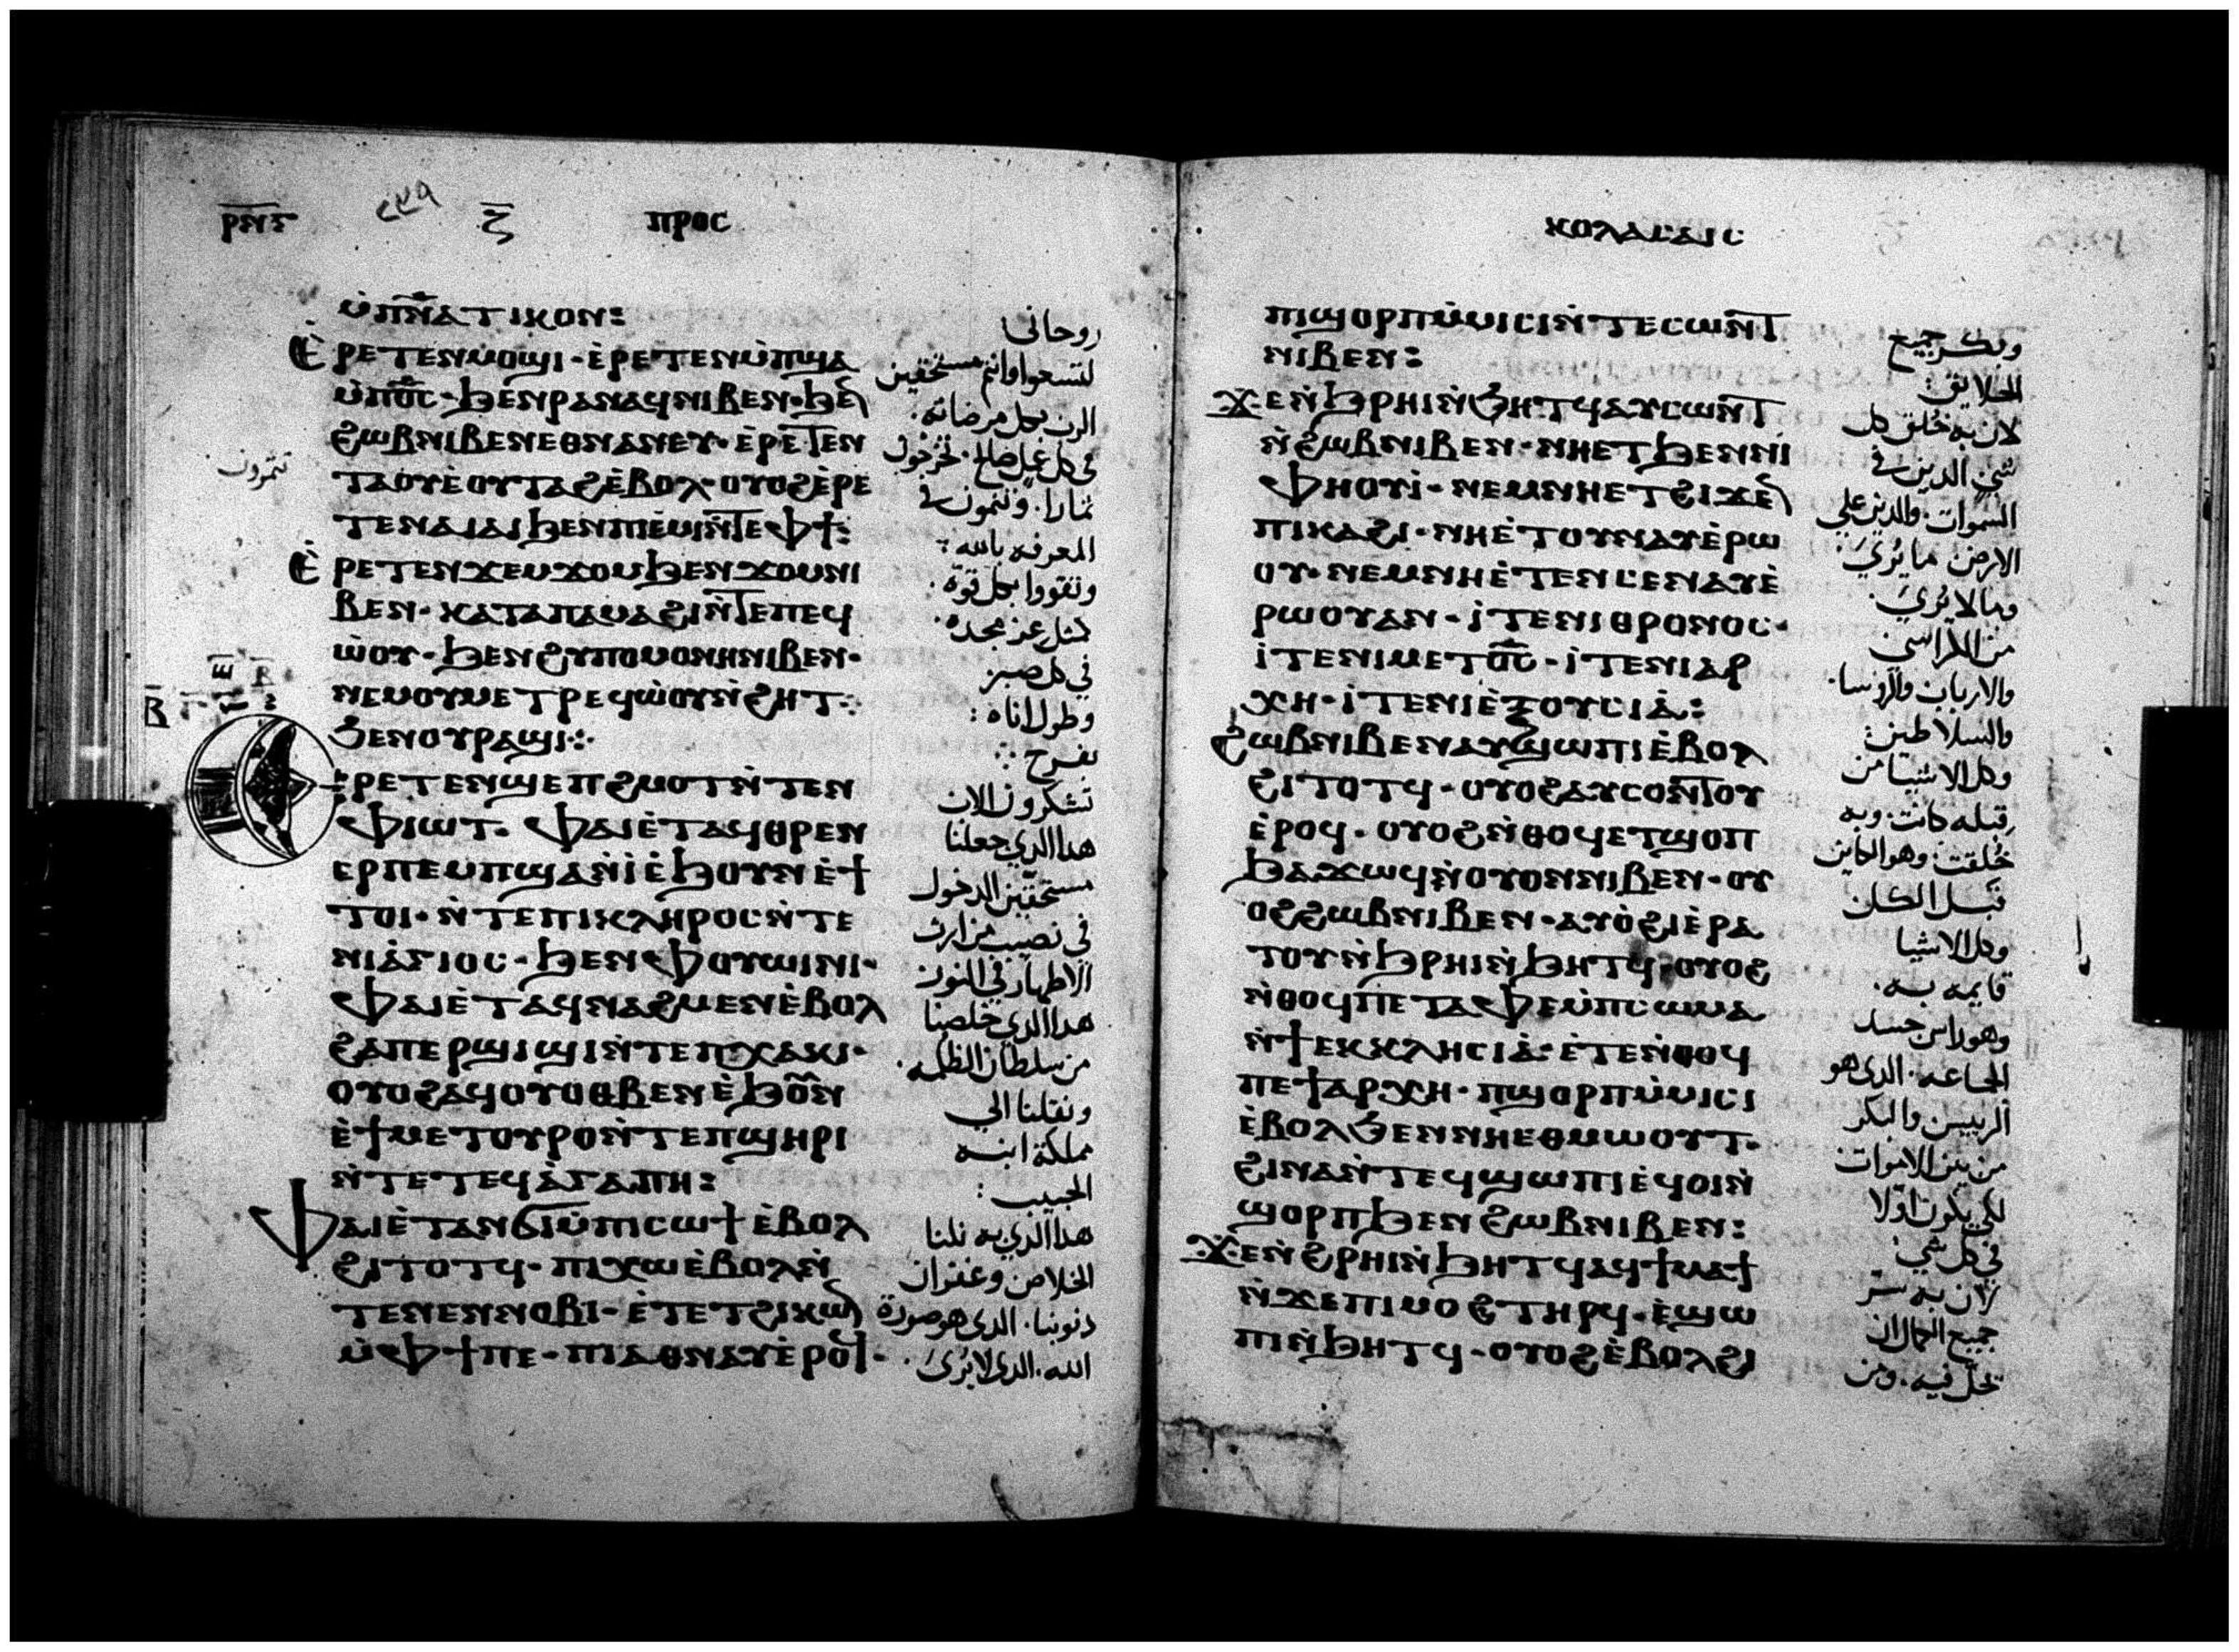 ⲣⲛⲋ ⲍ̅ ⲡⲣⲟⲥ
ⲙ̇ⲡⲛ̅ⲁ̅ⲧⲓⲕⲟⲛ:
Ⲉ̇ⲣⲉⲧⲉⲛⲙⲟϣⲓ· ⲉ̇ⲣⲉⲧⲉⲛⲙ̇ⲡϣⲁ
ⲙ̇ⲡⲟ̅ⲥ̅· ϧⲉⲛⲣⲁⲛⲁϥⲛⲓⲃⲉⲛ· ϧⲉⲛ
ϩⲱⲃⲛⲓⲃⲉⲛⲉⲑⲛⲁⲛⲉⲩ· ⲉ̇ⲣⲉⲧⲉⲛ
ⲧⲁⲟⲩⲉ̇ⲟⲩⲧⲁϩⲉ̇ⲃⲟⲗ· ⲟⲩⲟϩⲉ̇ⲣⲉ
ⲧⲉⲛⲁⲓⲁⲓϧⲉⲛⲡⲓⲉ̇ⲙⲓⲛ̇ⲧⲉⲫϯ:
Ⲉ̇ⲣⲉⲧⲉⲛϫⲉⲙϫⲟⲙϧⲉⲛϫⲟⲙⲛⲓ
ⲃⲉⲛ· ⲕⲁⲧⲁⲡⲁⲙⲁϩⲓⲛ̇ⲧⲉⲡⲉϥ
ⲱ̇ⲟⲩ· ϧⲉⲛϩⲩⲡⲟⲙⲟⲛⲏⲛⲓⲃⲉⲛ·
ⲛⲉⲙⲟⲩⲙⲉⲧⲣⲉϥⲱ̇ⲟⲩⲛ̇ϩⲏⲧ:
ϧⲉⲛⲟⲩⲣⲁϣⲓ:
ⲉⲣⲉⲧⲉⲛϣⲉⲡϩⲙⲟⲧⲛ̇ⲧⲉⲛ
ⲫⲓⲱⲧ· ⲫⲁⲓⲉ̇ⲧⲁϥⲑⲣⲉⲛ
ⲉⲣⲡⲉⲙⲡϣⲁⲛ̇ⲓ̇ⲉ̇ϧⲟⲩⲛⲉ̇ϯ
ⲧⲟⲓ· ⲛ̇ⲧⲉⲡⲓⲕⲗⲏⲣⲟⲥⲛ̇ⲧⲉ
ⲛⲓⲁ̇ⲅⲓⲟⲥ· ϧⲉⲛⲫⲟⲩⲱⲓⲛⲓ·
ⲫⲁⲓⲉ̇ⲧⲁϥⲛⲁϩⲙⲉⲛⲉ̇ⲃⲟⲗ
ϩⲁⲡⲉⲣϣⲓϣⲓⲛ̇ⲧⲉⲡⲭⲁⲕⲓ·
ⲟⲩⲟϩⲁϥⲟⲩⲟⲑⲃⲉⲛⲉ̇ϧⲟⲩⲛ
ⲉ̇ϯⲙⲉⲧⲟⲩⲣⲟⲛ̇ⲧⲉⲡϣⲏⲣⲓ
ⲛ̇ⲧⲉⲧⲉϥⲁ̇ⲅⲁⲡⲏ:
Ⲫⲁⲓⲉ̇ⲧⲁⲛϭⲓⲙ̇ⲡⲥⲱϯⲉ̇ⲃⲟⲗ
ϩⲓⲧⲟⲧϥ· ⲡⲓⲭⲱⲉ̇ⲃⲟⲗⲛ̇
ⲧⲉⲛⲉⲛⲛⲟⲃⲓ· ⲉ̇ⲧⲉⲧϩⲓⲕⲱⲛ
ⲙ̇ⲫϯⲡⲉ· ⲡⲓⲁⲑⲛⲁⲩⲉ̇ⲣⲟϥ·
روحانى
لتسعوا وانتم مستحقين
الرب بكل مرضاته.
فى كل عمل صالح. تخرجون
ثمارا. وتنمون فى
تثمرون
المعرفه بالله:
وتقووا بكل قوة.
كمثل عز مجده.
فى كل صبر
وطول اناه:
بفرح:
تشكرون الاب
هدا الدي جعلنا
مستحقين الدخول
في نصيب ميراث
الاطهار في النور
هدا الدي خلصنا
من سلطان الظلمه.
ونقلنا الى
مملكة ابنه
الحبيب:
هدا الدي به نلنا
الخلاص وغفران
دنوبنا. الدي هو صورة
الله. الدي لا يُرىَ.
ⲕⲟⲗⲁⲥⲁⲓⲥ
ⲡⲓϣⲟⲣⲡⲙ̇ⲙⲓⲥⲓⲛ̇ⲧⲉⲥⲱⲛⲧ
ⲛⲓⲃⲉⲛ:
Ϫⲉⲛ̇ϧⲣⲏⲓⲛ̇ϧⲏⲧϥⲁⲩⲥⲱⲛⲧ
ⲛ̇ϩⲱⲃⲛⲓⲃⲉⲛ· ⲛⲏⲉⲧϧⲉⲛⲛⲓ
ⲫⲏⲟⲩⲓ̇· ⲛⲉⲙⲛⲏⲉⲧϩⲓϫⲉⲛ
ⲡⲓⲕⲁϩⲓ· ⲛⲏⲉ̇ⲧⲟⲩⲛⲁⲩⲉ̇ⲣⲱ
ⲟⲩ· ⲛⲉⲙⲛⲏⲉ̇ⲧⲉⲛⲥⲉⲛⲁⲩⲉ̇
ⲣⲱⲟⲩⲁⲛ· ⲓ̇ⲧⲉⲛⲓⲑⲣⲟⲛⲟⲥ·
ⲓ̇ⲧⲉⲛⲓⲙⲉⲧⲟ̅ⲥ̅· ⲓ̇ⲧⲉⲛⲓⲁⲣ
ⲭⲏ· ⲓ̇ⲧⲉⲛⲓⲉ̇ⲝⲟⲩⲥⲓⲁ̇:
Ϩⲱⲃⲛⲓⲃⲉⲛⲁⲩϣⲱⲡⲓⲉ̇ⲃⲟⲗ
ϩⲓⲧⲟⲧϥ· ⲟⲩⲟϩⲁⲩⲥⲟⲛⲧⲟⲩ
ⲉ̇ⲣⲟϥ· ⲟⲩⲟϩⲛ̇ⲑⲟϥⲉⲧϣⲟⲡ
ϧⲁϫⲱϥⲛ̇ⲟⲩⲟⲛⲛⲓⲃⲉⲛ· ⲟⲩ
ⲟϩϩⲱⲃⲛⲓⲃⲉⲛ· ⲁⲩⲟ̇ϩⲓⲉ̇ⲣⲁ
ⲧⲟⲩⲛ̇ϧⲣⲏⲓⲛ̇ϧⲏⲧϥ· ⲟⲩⲟϩ
ⲛ̇ⲑⲟϥⲡⲉⲧⲁⲫⲉⲙ̇ⲡⲥⲱⲙⲁ
ⲛ̇ϯⲉⲕⲕⲗⲏⲥⲓⲁ̇· ⲉ̇ⲧⲉⲛ̇ⲑⲟϥ
ⲡⲉϯⲁⲣⲭⲏ· ⲡϣⲟⲣⲡⲙ̇ⲙⲓⲥⲓ
ⲉ̇ⲃⲟⲗϧⲉⲛⲛⲏⲉⲑⲙⲱⲟⲩⲧ·
ϩⲓⲛⲁⲛ̇ⲧⲉϥϣⲱⲡⲓⲉ̇ϥⲟⲓⲛ̇
ϣⲟⲣⲡϧⲉⲛϩⲱⲃⲛⲓⲃⲉⲛ:
Ϫⲉⲛ̇ϩⲣⲏⲓⲛ̇ϧⲏⲧϥⲁϥϯⲙⲁϯ
ⲛ̇ϫⲉⲡⲓⲙⲟϩⲧⲏⲣϥ· ⲉ̇ϣⲱ
ⲡⲓⲛ̇ϧⲏⲧϥ· ⲟⲩⲟϩⲉ̇ⲃⲟⲗϩⲓ
وبكر جميع
الخلايق:
لان به خُلق كل
شي الدين فى
السموات. والدين علي
الارض ما يُرىَ.
وما لا يُرىَ.
من الكراسى
والارباب والروسا.
والسلاطين:
وكل الاشيا من
قبله كانت. وبه
خُلقت: وهو الكاين
قبل الكل
وكل الاشيا
قايمه به.
وهو راس جسد
الجماعه. الدي هو
الرييس والبكر
من بين الاموات
لكي يكون اولا
فى كل شي:
لان به سر
جميع الكمال ان
تحل فيه. ومن